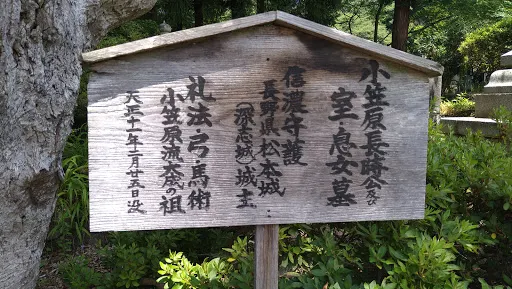 小笠原長時公及び
室息女墓
信濃守護
長野県松本城
(深志城)城主
礼法弓馬術
小笠原流大の祖
天正十一年二月廿五日没